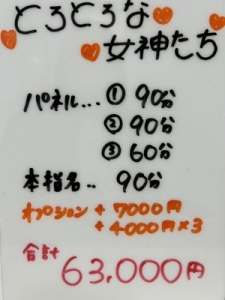 とろとろな
女神たち
パネル... ① 90分
② 90分
③ 60分
本指名.. 90分
オプション + 7000円
+ 4000円×3
合計
63,000円